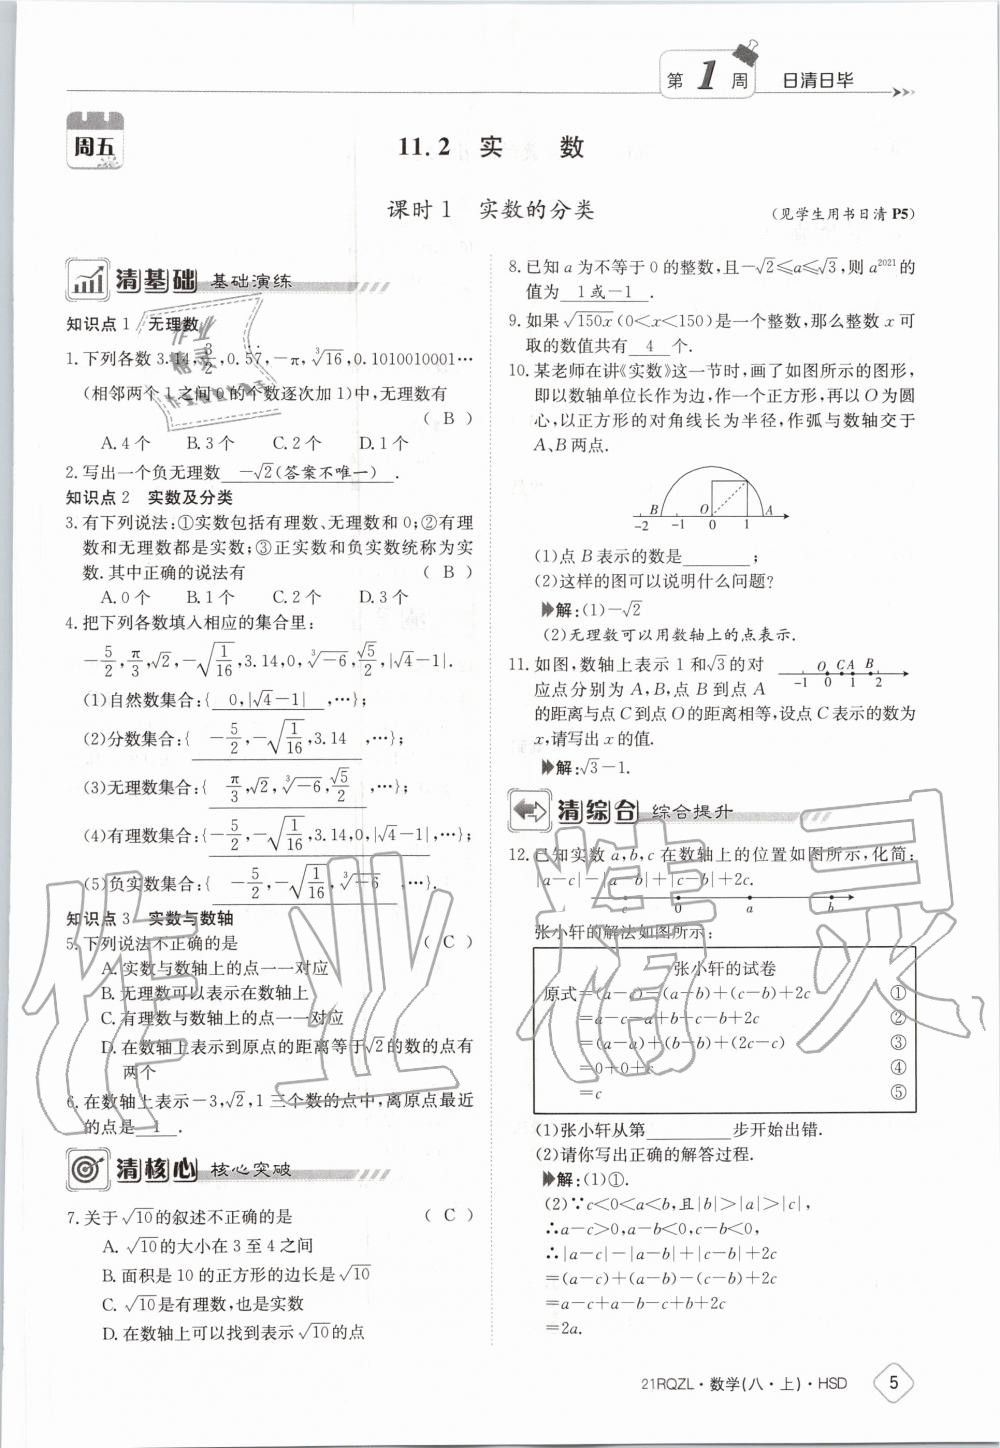 第1周 日清日毕
周五
11.2 实 数
课时1 实数的分类
(见学生用书日清 P5)
清基础 基础演练
知识点1 无理数
1.下列各数3.14,3/2,0.5̇7̇,-π,∛16,0.1010010001…
(相邻两个1之间0的个数逐次加1)中,无理数有
( B )
A.4个 B.3个 C.2个 D.1个
2.写出一个负无理数 -√2(答案不唯一) .
知识点2 实数及分类
3.有下列说法:①实数包括有理数、无理数和0;②有理
数和无理数都是实数;③正实数和负实数统称为实
数.其中正确的说法有 ( B )
A.0个 B.1个 C.2个 D.3个
4.把下列各数填入相应的集合里:
-5/2,π/3,√2,-√(1/16),3.14,0,∛-6,√5/2,|√4-1|.
(1)自然数集合:{ 0,|√4-1| ,…};
(2)分数集合:{ -5/2,-√(1/16),3.14 ,…};
(3)无理数集合:{ π/3,√2,∛-6,√5/2 ,…};
(4)有理数集合:{-5/2,-√(1/16),3.14,0,|√4-1|,…};
(5)负实数集合:{ -5/2,-√(1/16),∛-6 ,…}.
知识点3 实数与数轴
5.下列说法不正确的是 ( C )
A.实数与数轴上的点一一对应
B.无理数可以表示在数轴上
C.有理数与数轴上的点一一对应
D.在数轴上表示到原点的距离等于√2的数的点有
两个
6.在数轴上表示-3,√2,1三个数的点中,离原点最近
的点是 1 .
清核心 核心突破
7.关于√10的叙述不正确的是 ( C )
A.√10的大小在3至4之间
B.面积是10的正方形的边长是√10
C.√10是有理数,也是实数
D.在数轴上可以找到表示√10的点
8.已知a为不等于0的整数,且-√2≤a≤√3,则a²⁰²¹的
值为 1或-1 .
9.如果√150x(0<x<150)是一个整数,那么整数x可
取的数值共有 4 个.
10.某老师在讲《实数》这一节时,画了如图所示的图形,
即以数轴单位长作为边,作一个正方形,再以O为圆
心,以正方形的对角线长为半径,作弧与数轴交于
A、B两点.
B O A
-2 -1 0 1
(1)点B表示的数是________;
(2)这样的图可以说明什么问题?
解:(1)-√2
(2)无理数可以用数轴上的点表示.
11.如图,数轴上表示1和√3的对
应点分别为A,B,点B到点A
的距离与点C到点O的距离相等,设点C表示的数为
x,请写出x的值.
O C A B
-1 0 1 2
解:√3-1.
清综合 综合提升
12.已知实数a,b,c在数轴上的位置如图所示,化简:
|a-c|-|a-b|+|c-b|+2c.
c 0 a b
张小轩的解法如图所示:
张小轩的试卷
原式=(a-c)-(a-b)+(c-b)+2c ①
=a-c-a+b+c-b+2c ②
=(a-a)+(b-b)+(2c-c) ③
=0+0+c ④
=c ⑤
(1)张小轩从第________步开始出错.
(2)请你写出正确的解答过程.
解:(1)①.
(2)∵c<0<a<b,且|b|>|a|>|c|,
∴a-c>0,a-b<0,c-b<0,
∴|a-c|-|a-b|+|c-b|+2c
=(a-c)+(a-b)-(c-b)+2c
=a-c+a-b-c+b+2c
=2a.
21RQZL·数学(八·上)·HSD 5
作业精灵